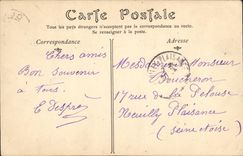 Carte Postale
Tous les pays étrangers n'acceptent pas la correspondance au verso.
Se renseigner à la poste.
Correspondance
Adresse
Chers amis
Bon Souvenir
à tous.
E Despres
Monsieur
Boucheron
17 rue de La
Neuilly Plaisance
(seine et oise)